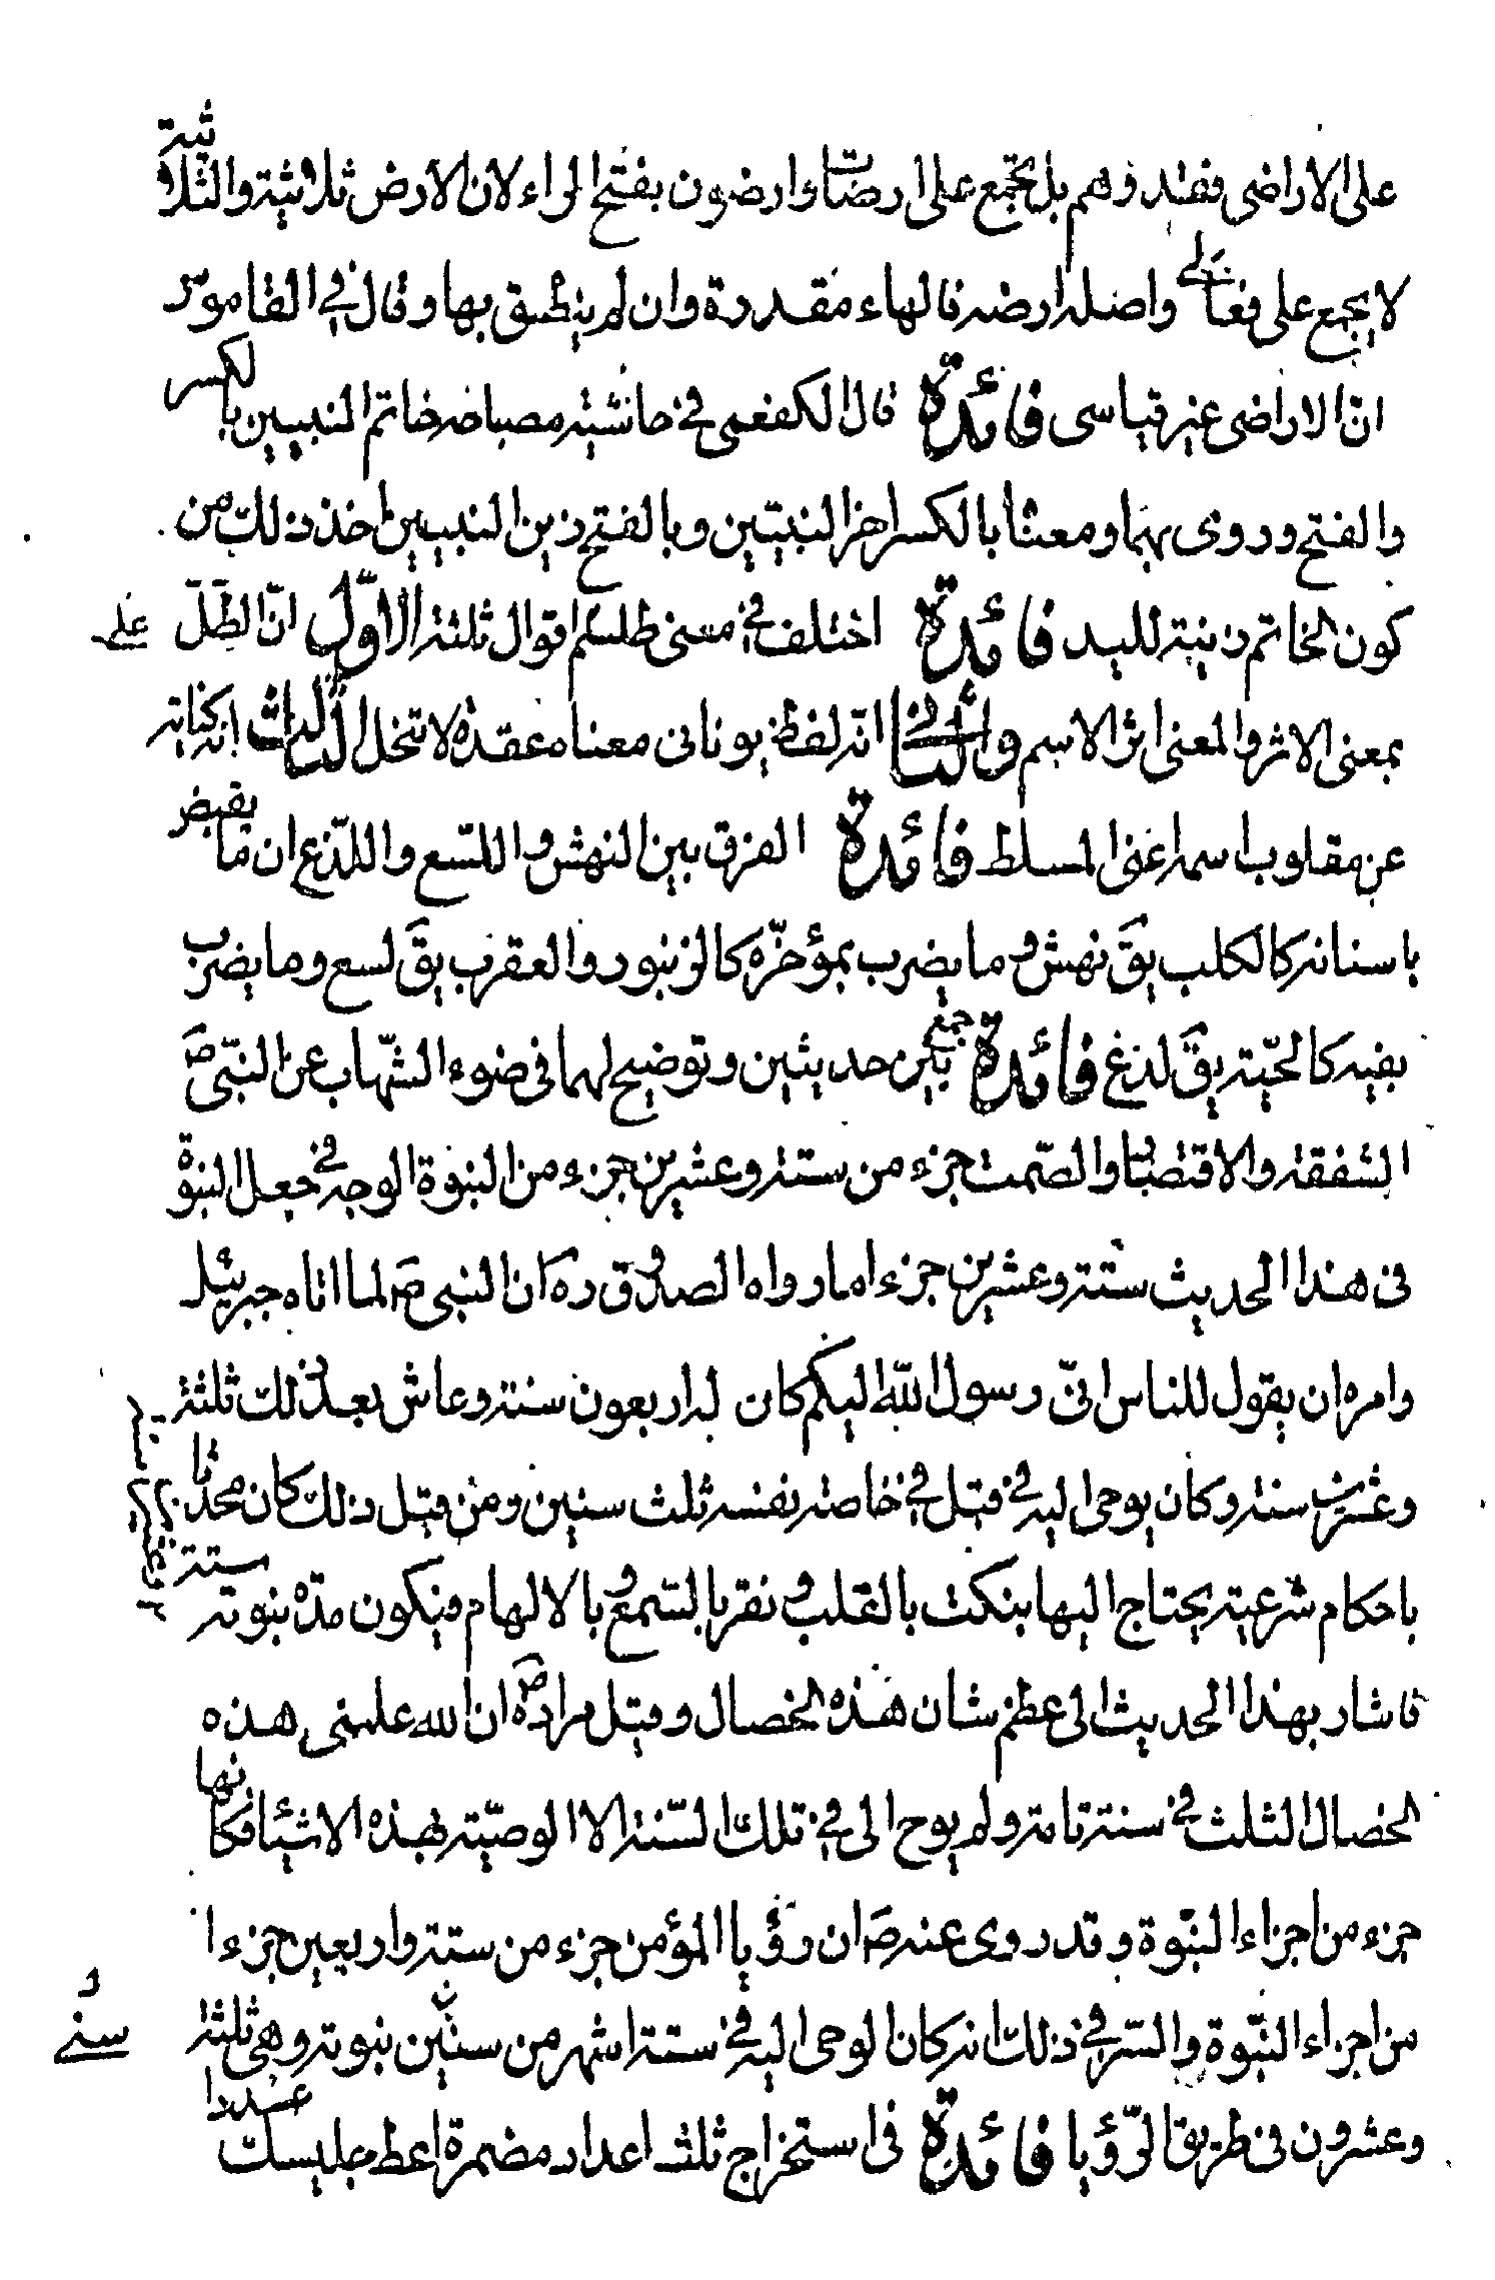 على الاراضى فقد وهم بل يجمع على ارضات وارضون بفتح الراء لان الارض ثلاثية والثلاثية
لا يجمع على فعالى واصله ارضه فالهاء مقدرة وان لم ينطق بها وقال في القاموس
انّ الاراضى غير قياسى فائدة قال الكفعمى في حاشية مصباحه خاتم النبيين بالكسر
والفتح وروى بهما ومعنا بالكسر اخر النبيّين وبالفتح زين النبيين اخذ ذلك من
كون الخاتم زينة لليد فائدة اختلف في معنى طلسم اقوال ثلثة الاوّل انّ الطّلّ
بمعنى الاثر والمعنى اثر الاسم والثانى انّه لفظ يونانى معناه عقدة لا تنحل الثالث انّه كناية
عن مقلوب اسمه اعنى المسلط فائدة الفرق بين النهش واللسّع واللدّغ ان ما يقبض
باسنانه كالكلب يقَ نهش وما يضرب بمؤخّره كالزنبور والعقرب يقَ لسع وما يضرب
بفيه كالحيّة يقَ لدغ فائدة جمع بين حديثين وتوضيح لهما في ضوء الشّهاب عن النبّى صَ
الشفقة والاقتصاد والصّمت جزء من ستة وعشرين جزء من النبوة الوجه في جعل النبوة
فى هذا الحديث ستّة وعشرين جزءا ما رواه الصدوق ره ان النبى صَ لما اتاه جبرئيل
وامره ان يقول للناس انّى رسول اللّه اليكم كان له اربعون سنة وعاش بعد ذلك ثلثة
وعشرين سنة وكان يوحى اليه في قبل في خاصة نفسه ثلث سنين ومن قبل ذلك كان محدثا
باحكام شرعية يحتاج اليها بنكت بالقلب ونقر بالسّمع وبالالهام فيكون مدة نبوته ستة
فاشار بهذا الحديث الى عظم شان هذه الخصال وقيل مراده صَ ان الله علمنى هذه
الخصال الثلث في سنة تامة ولم يوح الى في تلك السّنة الا الوصيّة بهذه الاشياء فكانها
جزء من اجزاء النبّوة وقد روى عنه صَ ان رؤيا المؤمن جزء من ستة واربعين جزءا
من اجزاء النبّوة والسّر في ذلك انه كان الوحى اليه في ستة اشهر من سنين نبوته وهى ثلثة
وعشرون فى طريق الرّؤيا فائدة فى استخراج ثلث اعداد مضمرة اعط جليسك عددا